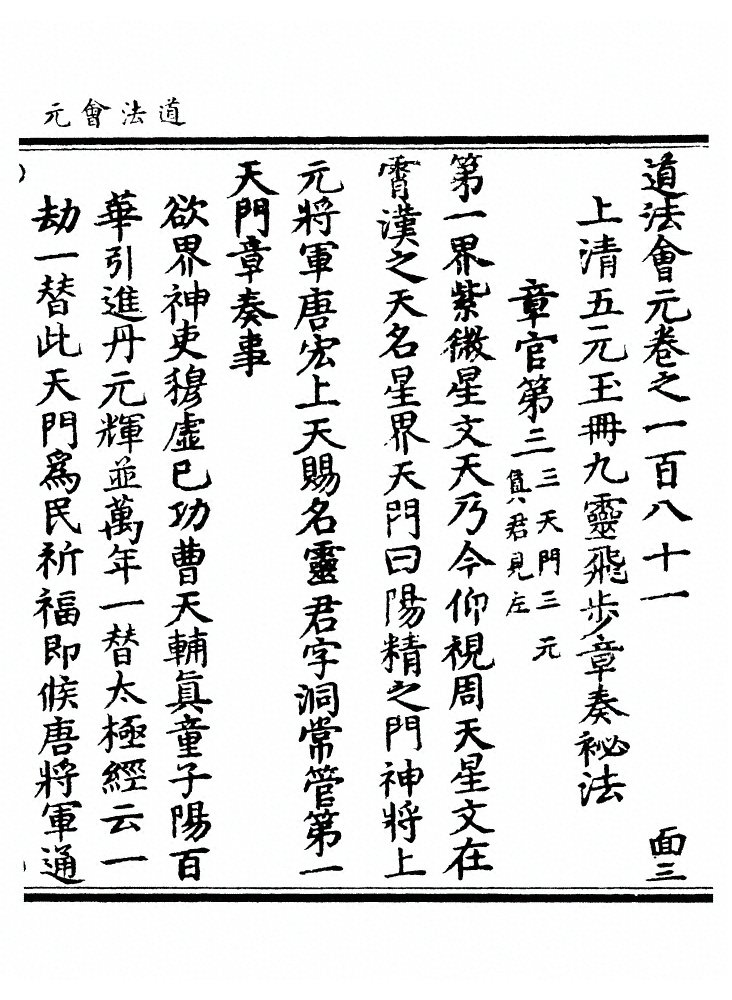 元會法道
道法會元卷之一百八十一 面三
上清五元玉冊九靈飛步章奏祕法
章官第三 三天門三元真君見左
第一界紫微星文天乃今仰視周天星文在
霄漢之天名星界天門曰陽精之門神將上
元將軍唐宏上天賜名靈君字洞常管第一
天門章奏事
欲界神吏穆虛巳功曹天輔真童子陽百
華引進丹元輝並萬年一替太極經云一
劫一替此天門為民祈福即候唐將軍通